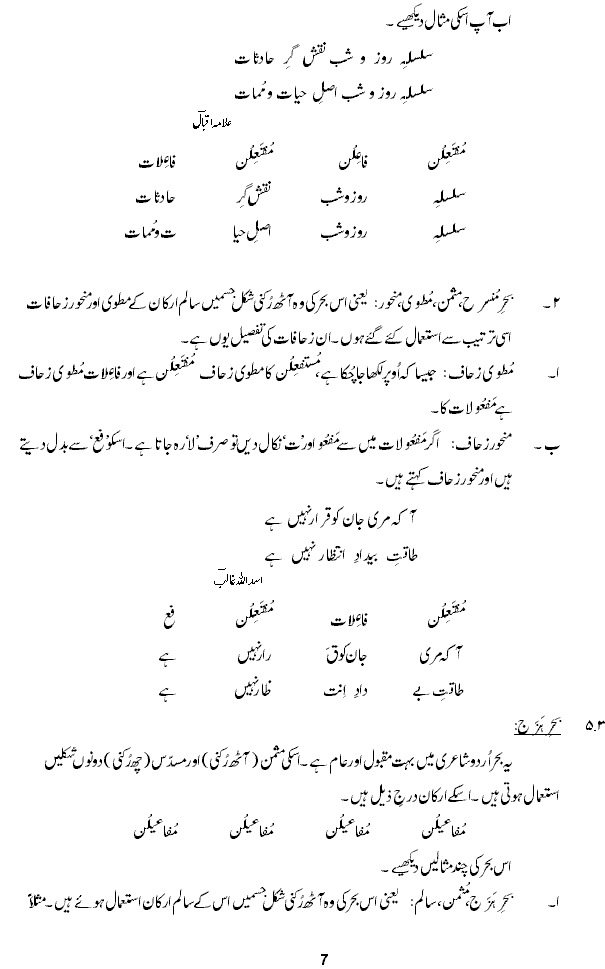 اب آپ اسکی مثال دیکھیے ۔
سلسلہِ روز و شب نقش گرِ حادثات
سلسلہِ روز و شب اصلِ حیات و مُمات
علامہ اقبالؔ
مُفتَعِلُن فاعِلُن مُفتَعِلُن فاعِلات
سلسلہِ روز و شب نقش گرِ حادثات
سلسلہِ روز و شب اصلِ حیا ت و مُمات
۲۔ بحرِ مُنسرح، مثمن، مُطوی، منحور: یعنی اس بحر کی وہ آٹھ رُکنی شکل جسمیں سالم ارکان کے مطوی اور منحور زحافات
اسی ترتیب سے استعمال کئے گئے ہوں۔ ان زحافات کی تفصیل یوں ہے۔
ا۔ مُطوی زحاف: جیسا کہ اُوپر لکھا جا چُکا ہے، مُستفعِلُن کا مطوی زحاف مُفتَعِلُن ہے اور فاعِلات مُطوی زحاف
ہے مَفعُولات کا۔
ب۔ منحور زحاف: اگر مَفعُولات میں سے مَفعُو اور 'ت' نکال دیں تو صرف 'لا' رہ جاتا ہے۔ اسکو 'فع' سے بدل دیتے
ہیں اور منحور زحاف کہتے ہیں۔
آ کہ مری جان کو قرار نہیں ہے
طاقتِ بیدادِ انتظار نہیں ہے
اسد اللہ غالبؔ
مُفتَعِلُن فاعِلات مُفتَعِلُن فع
آ کہ مری جان کو قَ رار نہیں ہے
طاقتِ بے دادِ اِنت ظار نہیں ہے
۵.۳ بحرِ ہَزَج:
یہ بحر اُردو شاعری میں بہت مقبول اور عام ہے۔ اسکی مثمن (آٹھ رُکنی) اور مسدّس (چھ رُکنی) دونوں شکلیں
استعمال ہوتی ہیں۔ اسکے ارکان درجِ ذیل ہیں۔
مُفاعیلُن مُفاعیلُن مُفاعیلُن مُفاعیلُن
اس بحر کی چند مثالیں دیکھیے ۔
ا۔ بحرِ ہَزَج، مُثمن، سالم: یعنی اس بحر کی وہ آٹھ رُکنی شکل جسمیں اس کے سالم ارکان استعمال ہوئے ہیں۔ مثلاً
7